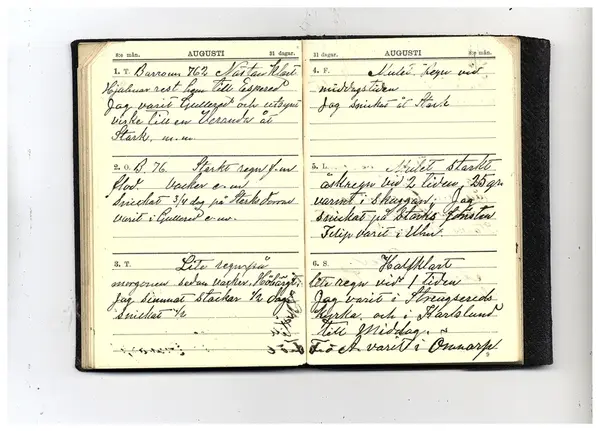 8:e mån. AUGUSTI 31 dagar.
1. T. Barrom 762 Nästan klart
Hjalmar rest hem till Espered
Jag varit i Gullered och utsynt
virke till en Veranda åt
Stark. m.m
2. O. B. 76. Starkt regn f.m
flod. vacker e.m
snickat 3/4 dag på Starks
varit i Gullered e.m.
3. T. Lite regn på
morgonen sedan vacker.
Jag timmat stackar 1/2 dag
snickat 1/2
31 dagar. AUGUSTI 8:e mån.
4. F. Mulet. Regn vid
middagstiden
Jag snickat åt Stark
5. L. Mulet starkt
åskregn vid 2 tiden, 25 gr
varmt i skuggan, Jag
snickat på Starks fönster
Filip varit i Uhn.
6. S. Halfklart
lite regn vid 1 tiden
Jag varit i Strengsereds
Kyrka och i Karlslund
till Middag.
A varit i Onnarp